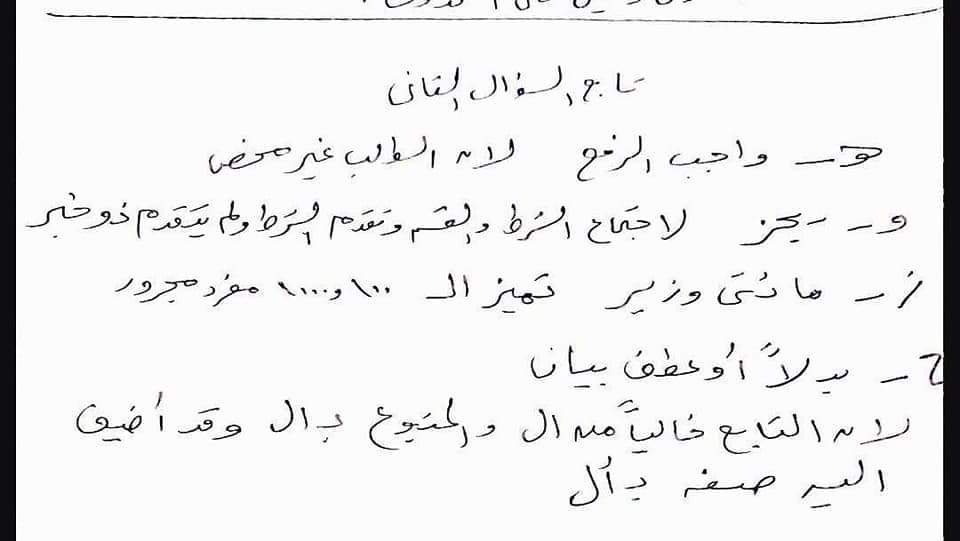 تابع السؤال الثانى
هـ - واجب الرفع لانه الطالب غير محض
و - يجز لاجتماع الشرط والقسم وتقدم الشرط ولم يتقدم ذو خبر
ز - مائتى وزير تميز الـ ١٠٠ و ١٠٠٠ مفرد مجرور
ح - بدلاً أو عطف بيان
لانه التابع خالياً من ال والمتبوع بـ ال وقد أضيف
اليه صفه بـ أل